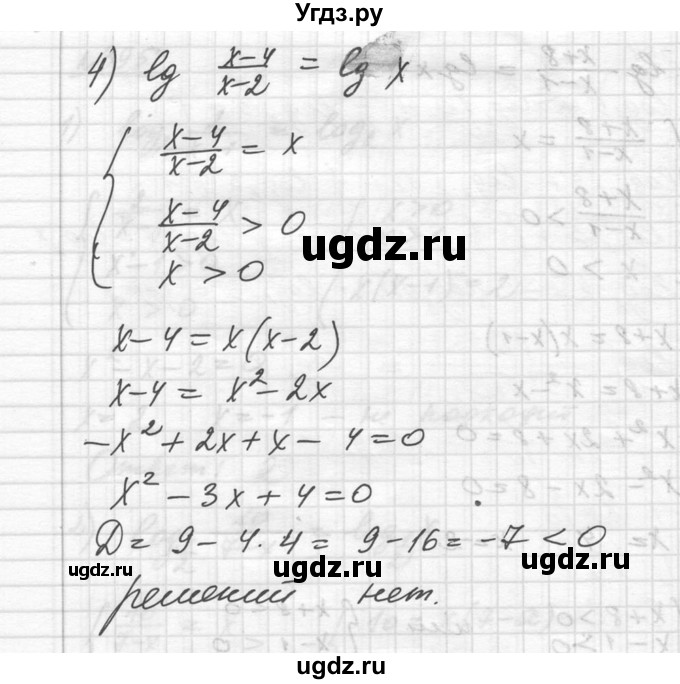 Угdz.ру
4) lg (x-4)/(x-2) = lg x
{ (x-4)/(x-2) = x
(x-4)/(x-2) > 0
ugdz.ru
x > 0
x-4 = x(x-2)
x-4 = x²-2x
-x²+2x+x-4=0
x²-3x+4=0
D = 9-4·4 = 9-16 = -7 < 0
ugdz.ru ugdz.ru ugdz.ru
решений нет.
ugdz.ru